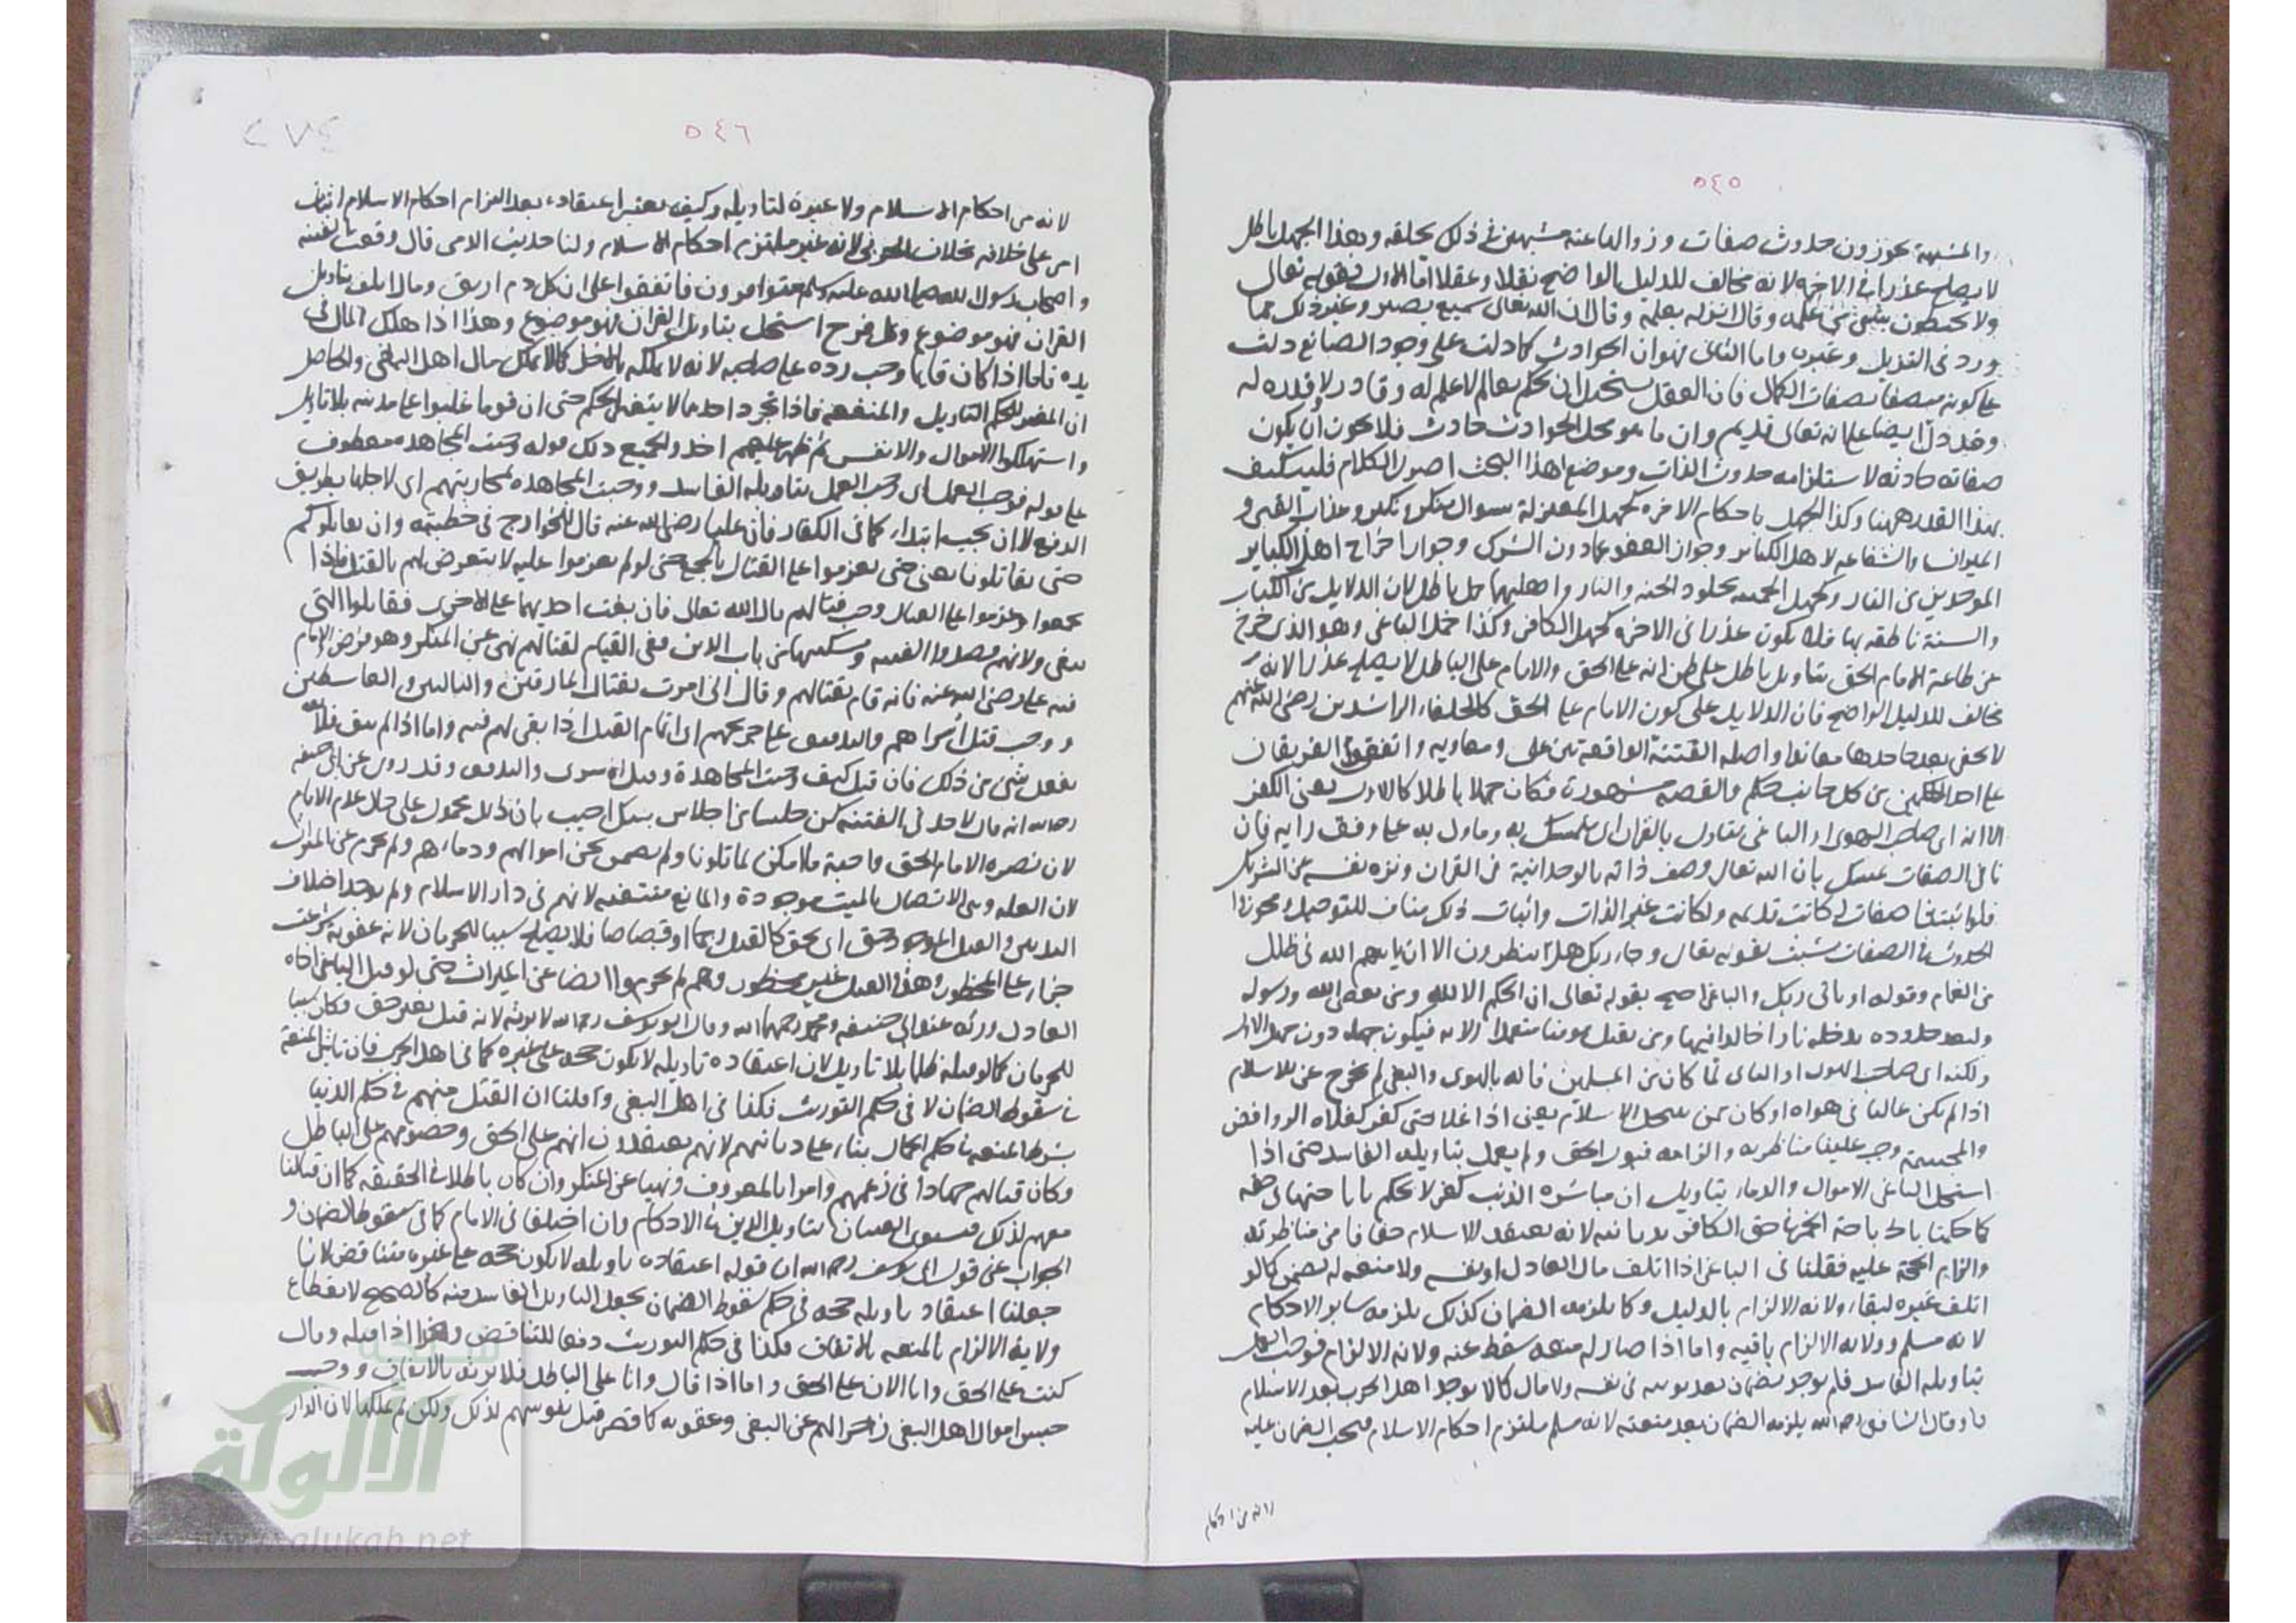 ٥٤٥
والمشبهة يجوزون حدوث صفات وزوالها عنه مشبهين في ذلك بخلقه وهذا الجهل باطل
لا يصلح عذرا في الاخرة لانه مخالف للدليل الواضح نقلا وعقلا اما الاول فقوله تعالى
ولا يحيطون بشيء من علمه وقال انزله بعلمه وقال ان الله تعالى سميع بصير وغير ذلك مما
ورد في التنزيل وغيره واما الثاني فهو ان الحوادث كما دلت على وجود الصانع دلت
على كونه متصفا بصفات الكمال فان العقل يستحيل ان يحكم بعالم لا علم له وقادر لا قدرة له
وقد دل ايضا على انه تعالى قديم وان ما هو محل الحوادث حادث فلا يجوز ان يكون
صفاته حادثة لاستلزامه حدوث الذات وموضع هذا البحث اصول الكلام فليكتف
بهذا القدر ههنا وكذا الجهل باحكام الاخرة كجهل المعتزلة بسوال منكر ونكير وعذاب القبر و
الميزان والشفاعة لاهل الكباير وجواز العفو عما دون الشرك وجواز اخراج اهل الكباير
الموحدين من النار وكجهل الجهمية بخلود الجنة والنار واهليهما جهل باطل لان الدلايل من الكتاب
والسنة ناطقة بها فلا يكون عذرا في الاخرة كجهل الكافر وكذا جهل الباغي وهو الذي خرج
عن طاعة الامام الحق بتاويل باطل على ظن انه على الحق والامام على الباطل لا يصلح عذرا لانه
مخالف للدليل الواضح فان الدلايل على كون الامام على الحق كالخلفاء الراشدين رضي الله عنهم
لا يخفى يعد جاحدها معاندا واصله الفتنة الواقعة بين على ومعاويه واتفقوا الفريقان
على احد الحكمين من كل جانب حكم والقصة مشهورة فكان جهلا باطلا كالاول يعني الكفر
الا انه اى صاحب الهوى او الباغي يتاول بالقران اى متمسك به وماول به على وفق رايه فان
نافي الصفات تمسك بان الله تعالى وصف ذاته بالوحدانية في القران ونزه نفسه عن الشريك
فلو اثبتنا صفات له كانت قديمه ولكانت غير الذات واثبات ذلك مناف للتوحيد ومجوزوا
الحدوث في الصفات تشبث بقوله تعالى وجاء ربك هل ينظرون الا ان ياتيهم الله في ظلل
من الغمام وقوله او ياتي ربك والباغي احتج بقوله تعالى ان الحكم الا لله ومن يعص الله ورسوله
ويتعد حدوده يدخله نارا خالدا فيها ومن يقتل مومنا متعمدا الاية فيكون جهله دون جهل الاول
ولكنه اى صاحب الهوى او الباغي لما كان من المسلمين فانه بالهوى والبغى لم يخرج عن الاسلام
اذا لم يكن غاليا في هواه او كان ممن ينتحل الاسلام يعني اذا غلا حتى كفر كغلاة الروافض
والمجسمة وجب علينا مناظرته والزامه قبول الحق ولم يعمل بتاويله الفاسد حتى اذا
استحل الباغي الاموال والدماء بتاويل ان مباشرة الذنب كفر لا يحكم باباحتها في حقه
كما حكمنا باباحة الخمر في حق الكافر بديانته لانه يعتقد الاسلام حقا فامكن مناظرته
والزام الحجة عليه فقلنا في الباغي اذا اتلف مال العادل او نفسه ولا منعة له يضمن كما لو
اتلف غيره لبقاء ولاية الالزام بالدليل وكما يلزمه الضمان كذلك يلزمه ساير الاحكام
لانه مسلم وولاية الالزام باقية واما اذا صار له منعة سقط عنه ولاية الالزام فوجب العمل
بتاويله الفاسد فلم يوخذ بضمان بعد توبته في نفس ولا مال كما لا يوخذ اهل الحرب بعد الاسلام
وقال الشافعي رحمه الله يلزمه الضمان بعد منعته لانه مسلم ملتزم احكام الاسلام فيجب الضمان عليه
لانه من احكام
٥٤٦
٢٧٤
لانه من احكام الاسلام ولا عبرة لتاويله وكيف يعتبر اعتقاده بعد التزام احكام الاسلام
على خلافه بخلاف الحربي لانه غير ملتزم احكام الاسلام ولنا حديث الزهرى قال وقعت الفتنة
واصحاب رسول الله صلى الله عليه وسلم متوافرون فاتفقوا على ان كل دم اريق ومال اتلف بتاويل
القران فهو موضوع وكل فرج استحل بتاويل القران فهو موضوع وهذا اذا هلك المال في
يده فاما اذا كان قايما وجب رده على صاحبه لانه لا يملكه بالاخذ كما لا يملك مال اهل البغي والحاصل
ان المغير للحكم التاويل والمنعة فاذا تجرد احدهما لا يتغير الحكم حتى ان قوما غلبوا على مدينة بلا تاويل
واستهلكوا الاموال والانفس ثم ظهر عليهم اخذوا بجميع ذلك قوله وجبت المجاهدة معطوف
على قوله فوجب العمل اى وجب العمل بتاويله الفاسد ووجبت المجاهدة لمحاربتهم اى لاجلها بطريق
الدفع لا ان يجب ابتداء كما في الكفار فان عليا رضي الله عنه قال للخوارج في خطبته ولن نقاتلكم
حتى تقاتلونا يعني حتى تعزموا على القتال بالتجمع حتى لو لم يعزموا عليه لا يتعرض لهم بالقتل فاذا
تجمعوا وعزموا على القتال وجب قتالهم قال الله تعالى فان بغت احديهما على الاخرى فقاتلوا التي
تبغى ولانهم قصدوا الفتنة وتسكينها من باب الدين ففي القيام لقتالهم نهى عن المنكر وهو فرض الامام
فيه على رضي الله عنه فانه قام بقتالهم وقال انى امرت بقتال المارقين والناكثين والقاسطين
ووجب قتل اسراهم والتدفيف على جريحهم اى اتمام القتل اذا بقى لهم فئة واما اذا لم يبق فلا
يفعل شى من ذلك فان قيل كيف وجبت المجاهدة وقتل الاسرى والتدفيف وقد روى عن ابى حنيفة
رحمه الله انه قال لاحد في الفتنة كن حلسا من احلاس بيتك اجيب بان ذلك محمول على حال عدم الامام
لان نصرة الامام الحق واجبة ما امكن لما تلونا ولم نضمن نحن اموالهم ودماءهم ولم نحرم عن الميراث
لان العلة وهى الاتصال بالميت موجودة والمانع منتفية لانهم في دار الاسلام ولم يوجد اختلاف
الدينين والقتل الموجود بحق اى بحق كالقتل رجما او قصاصا فلا يصلح سببا للحرمان لانه عقوبة شرعت
جزاء على المحظور وهذا القتل غير محظور وهم لم يحرموا ايضا عن الميراث حتى لو قتل الباغي اخاه
العادل ورثه عند ابى حنيفة ومحمد رحمهما الله وقال ابو يوسف رحمه الله لا يرثه لانه قتل بغير حق فكان سببا
للحرمان كما لو قتله ظلما بلا تاويل لان اعتقاده تاويله لا يكون حجة على غيره كما في اهل الحرب فان تاثير المنعة
في سقوط الضمان لا في حكم التوريث فكذا في اهل البغي وقلنا ان القتل منهم في حكم الدنيا
بشرط المنعة في حكم الحال بناء على ديانتهم لانهم يعتقدون انهم على الحق وخصومهم على الباطل
وكان قتالهم جهادا في زعمهم وامرا بالمعروف ونهيا عن المنكر وان كان باطلا في الحقيقة كما ان قتالنا
معهم لذلك فيستوى القتلان بتاويل الدين في الاحكام وان اختلفا في الاثام كما في سقوط الضمان و
الجواب عن قول ابى يوسف رحمه الله ان قوله اعتقاده تاويله لا يكون حجة على غيره متناقض لانا
جعلنا اعتقاد تاويله حجة في حكم سقوط الضمان بجعل التاويل الفاسد منه كالصحيح لانقطاع
ولاية الالزام بالمنعة بالاتفاق فكذا في حكم التوريث دفعا للتناقض وهذا اذا قتله وقال
كنت على الحق وانا الان على الحق واما اذا قال وانا على الباطل فلا يرثه بالاتفاق ووجب
حبس اموال اهل البغي زجرا لهم عن البغي وعقوبة كما قصر قتل نفوسهم لذلك ولكن لم نملكها لان الدار
الألوكة
www.alukah.net